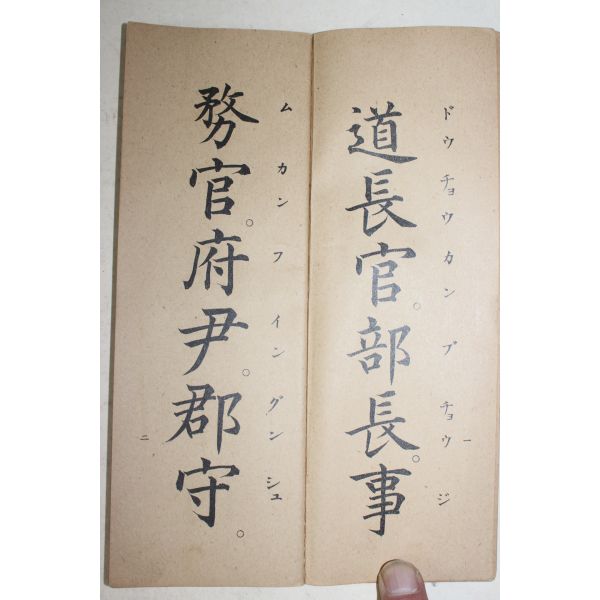 ドウチョウカンブチョウジ
道長官。部長。事
一
ムカンフインダンシュ
務官。府尹。郡守。
二